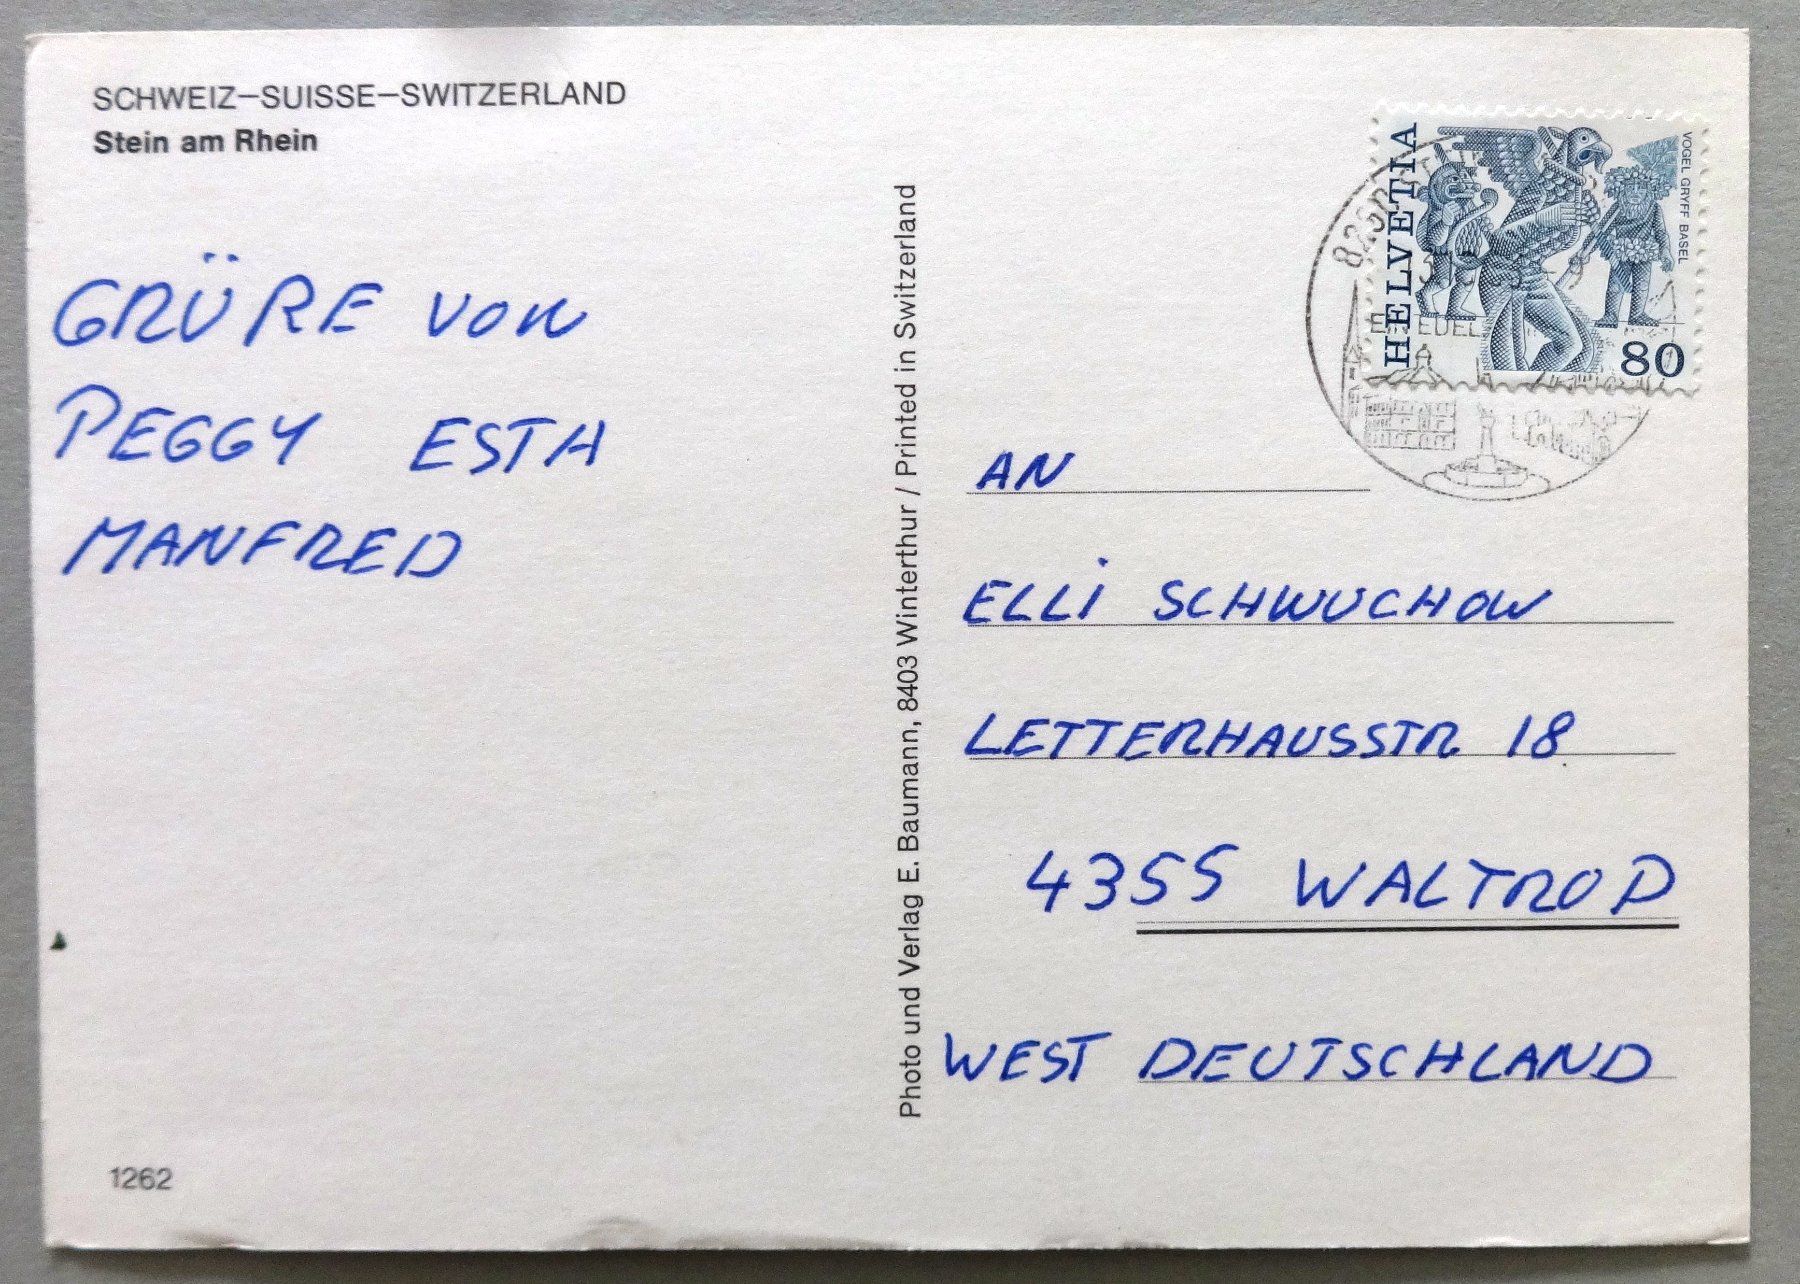 SCHWEIZ–SUISSE–SWITZERLAND
Stein am Rhein
GRÜRE VON
PEGGY ESTA
MANFRED
1262
Photo und Verlag E. Baumann, 8403 Winterthur / Printed in Switzerland
HELVETIA
VOGEL GRYFF BASEL
80
AN
ELLI SCHWUCHOW
LETTERHAUSSTR 18
4355 WALTROP
WEST DEUTSCHLAND